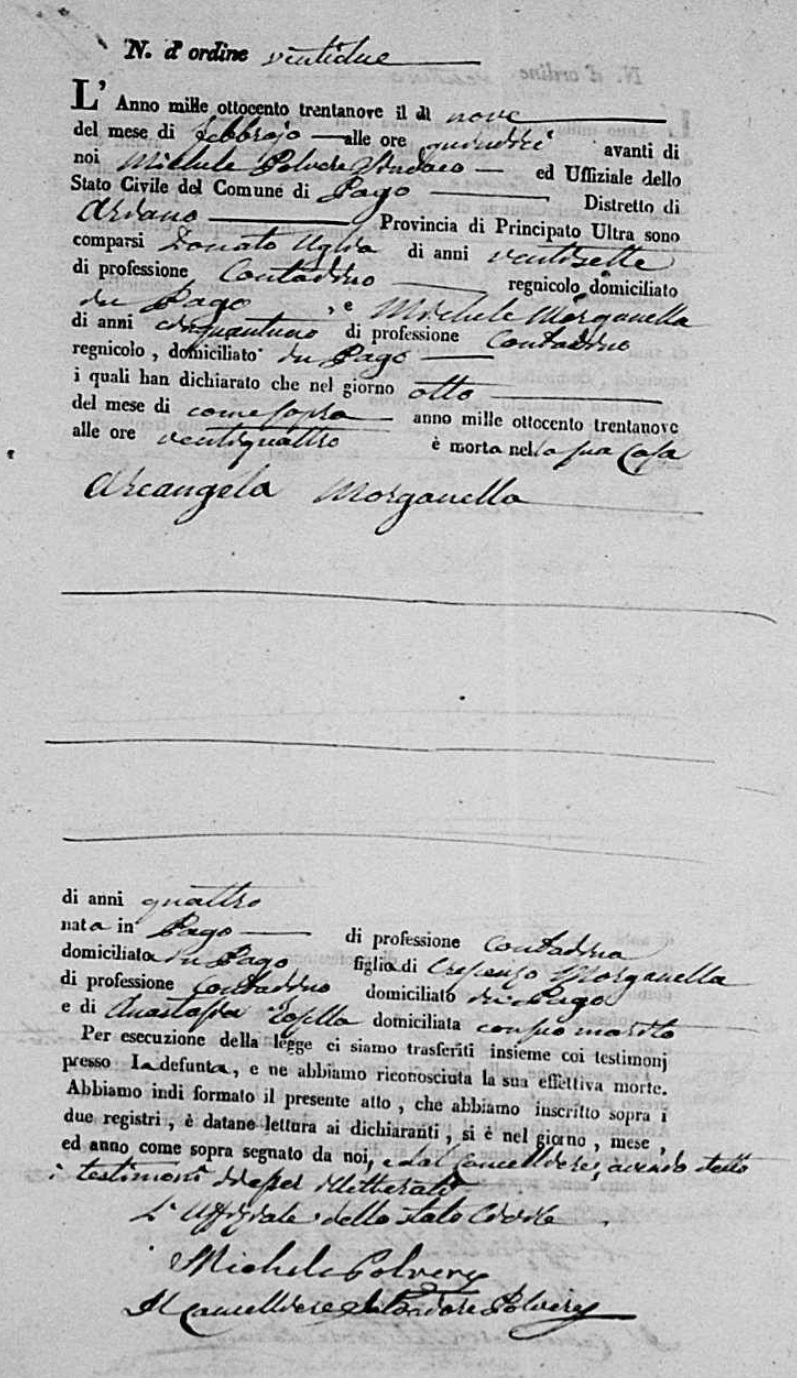 N. d'ordine ventidue
L'Anno mille ottocento trentanove il dì nove
del mese di febbrajo alle ore quindici avanti di
noi Michele Polvere Sindaco ed Uffiziale dello
Stato Civile del Comune di Pago Distretto di
Ariano Provincia di Principato Ultra sono
comparsi Donato Uglia di anni ventisette
di professione Contadino regnicolo domiciliato
in Pago, e Michele Morganella
di anni cinquantuno di professione Contadino
regnicolo, domiciliato in Pago
i quali han dichiarato che nel giorno otto
del mese di come sopra anno mille ottocento trentanove
alle ore ventiquattro è morta nella sua casa
Arcangela Morganella
di anni quattro
nata in Pago di professione contadina
domiciliata in Pago figlia di Crescenzo Morganella
di professione contadino domiciliato in Pago
e di Anastasia domiciliata con suo marito
Per esecuzione della legge ci siamo trasferiti insieme coi testimonj
presso la defunta, e ne abbiamo riconosciuta la sua effettiva morte.
Abbiamo indi formato il presente atto, che abbiamo inscritto sopra i
due registri, è datane lettura ai dichiaranti, si è nel giorno, mese,
ed anno come sopra segnato da noi, e dal Cancelliere, avendo detto
i testimoni di esser illetterati
L'Uffiziale dello Stato Civile
Michele Polvere
Il Cancelliere Polvere